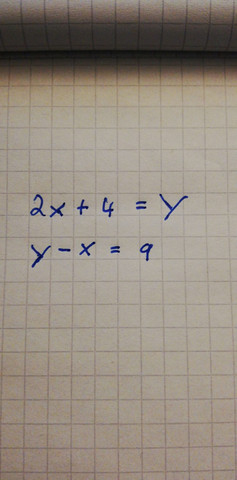 2x + 4 = y
y - x = 9